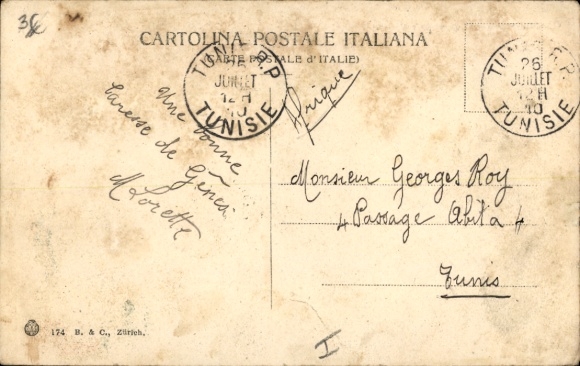 36
CARTOLINA POSTALE ITALIANA
(CARTE POSTALE d'ITALIE)
TUNIS R.P
26
JUILLET
12 H
10
TUNISIE
TUNIS R.P.
26
JUILLET
12 H
10
TUNISIE
Afrique
Une bonne
caresse de Gênes
M Lorette
Monsieur Georges Roy
4 Passage Abita 4
Tunis
174 B. & C., Zürich.
I